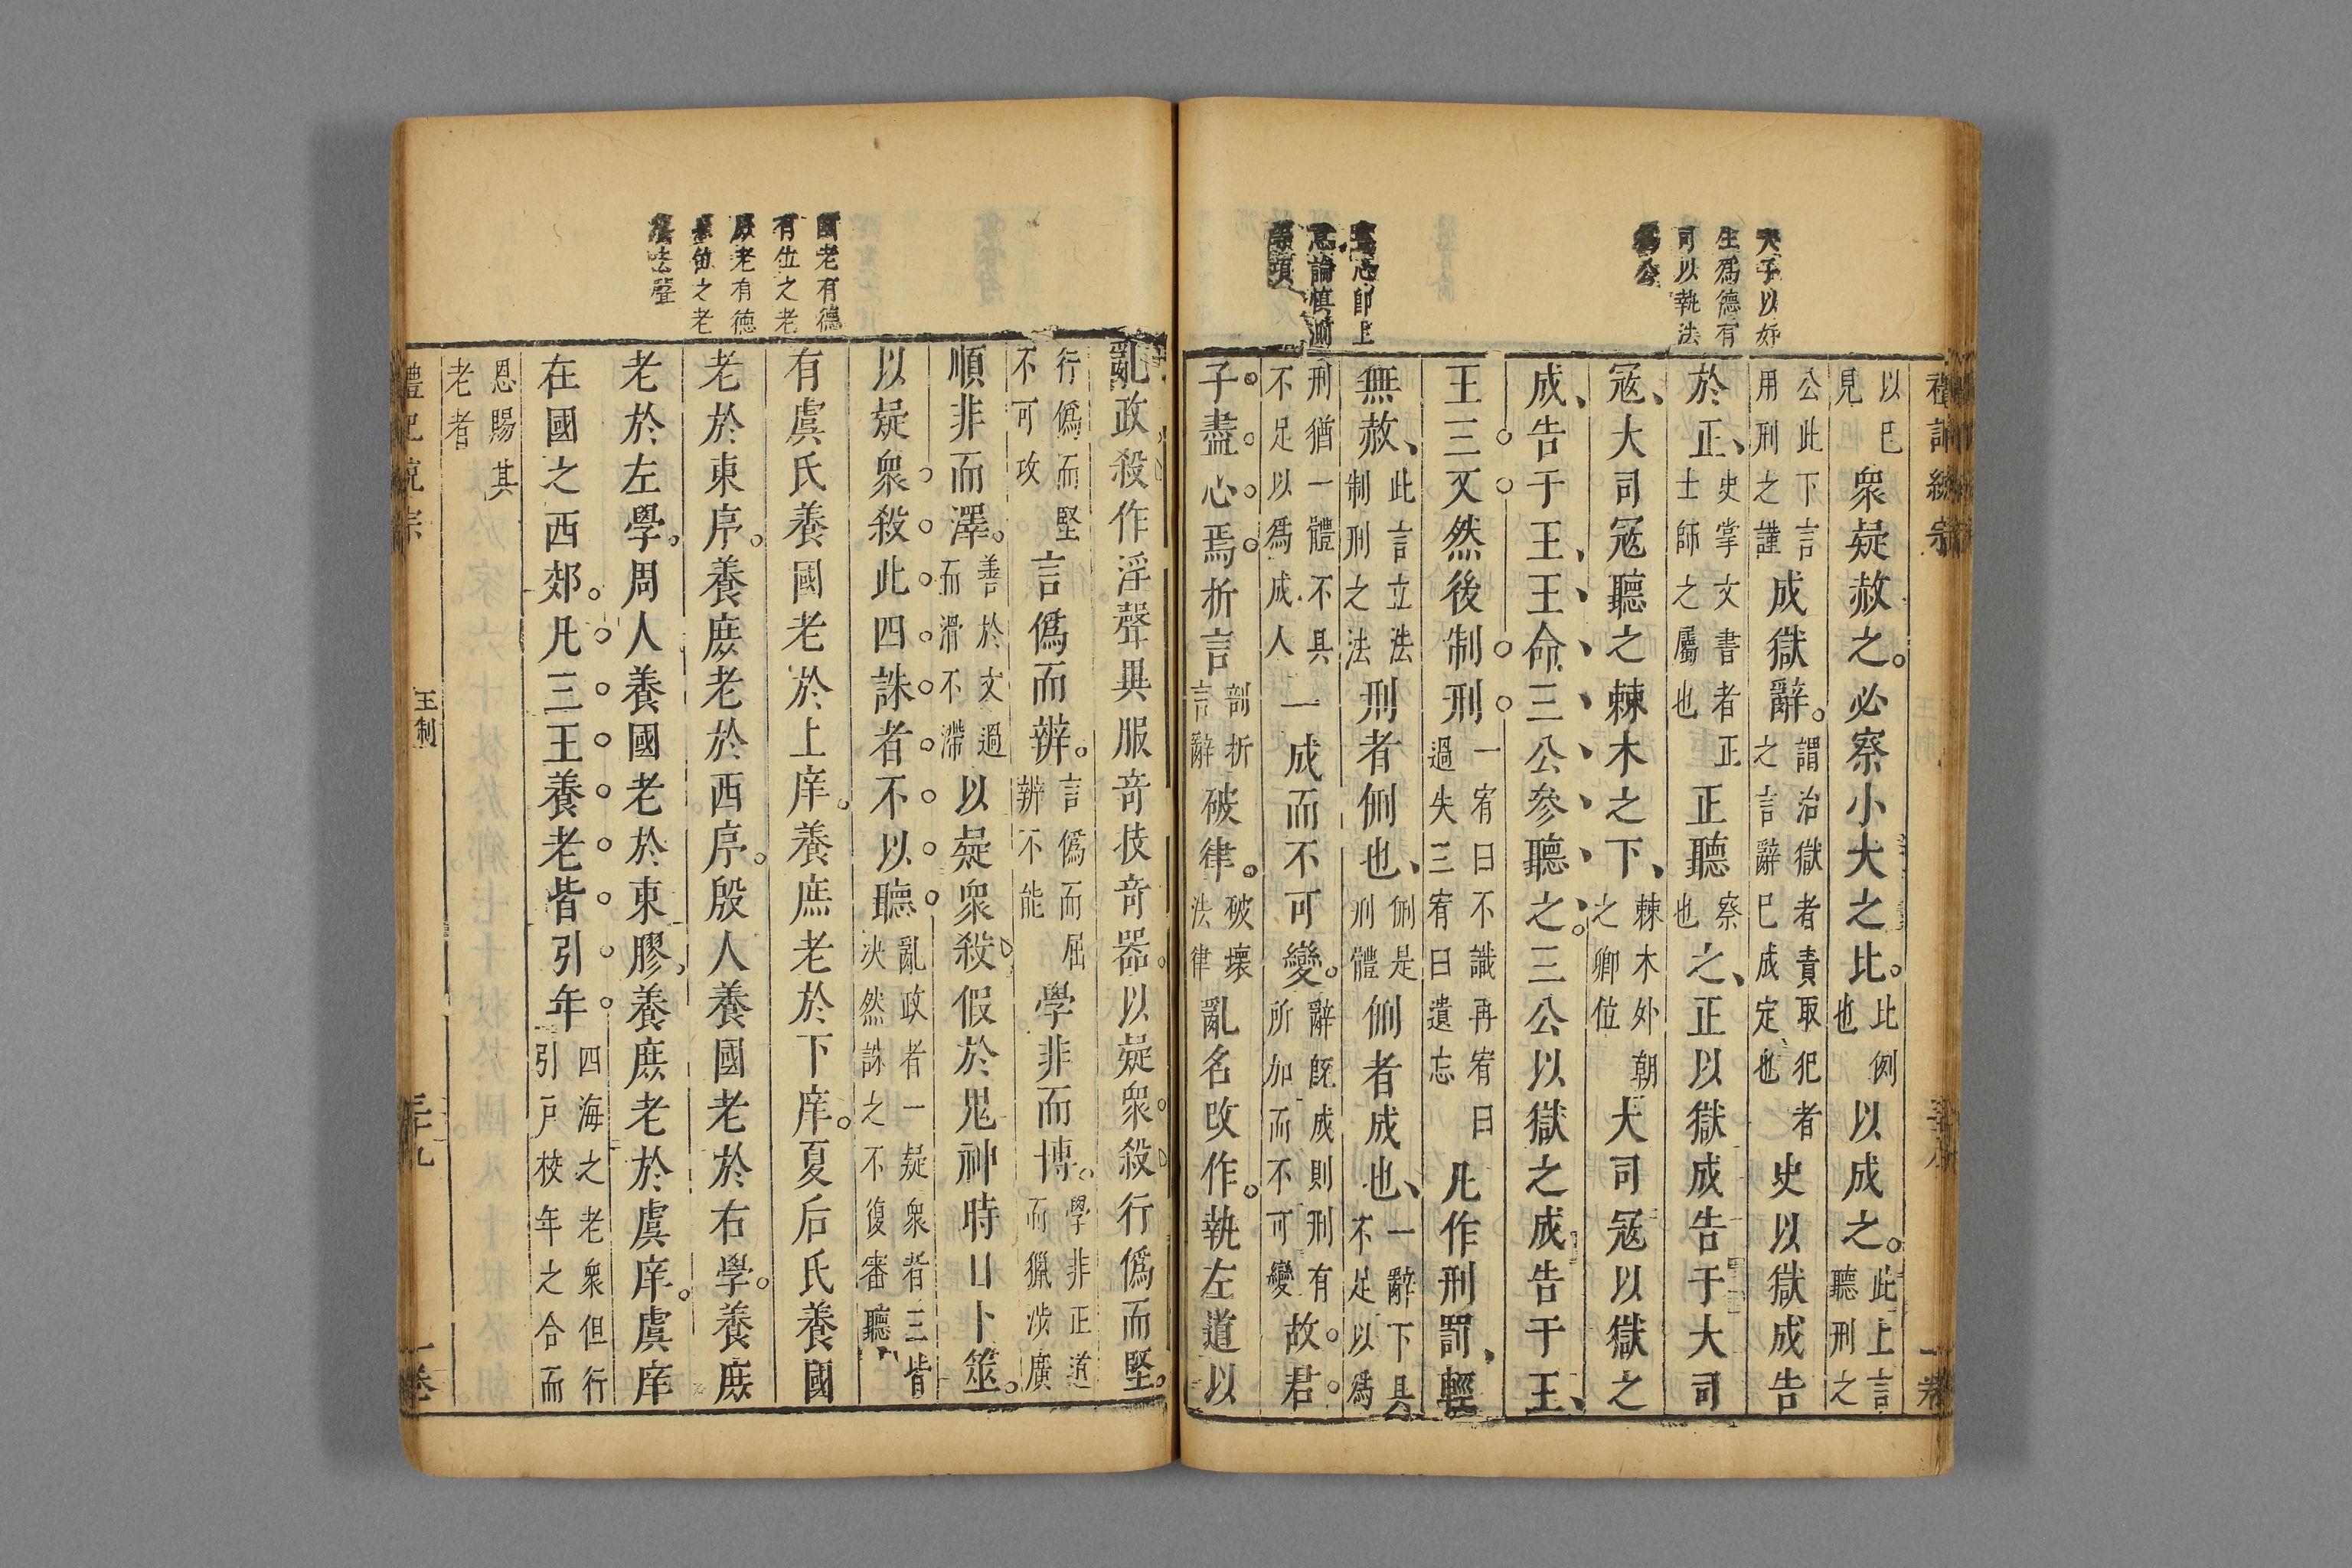 天子以好
生爲德有
司以執法
爲公
盡心即上
意論慎測
國老有德
有位之老
庶老有德
無位之老
以巳見衆疑赦之必察小大之比比例也以成之此上言聽刑之
公此下言用刑之謹成獄辭謂治獄者責取犯者之言辭巳成定也史以獄成告
於正史掌文書者正士師之屬也正聽察也之正以獄成告于大司
寇大司寇聽之棘木之下棘木外朝之卿位大司寇以獄之
成告于王王命三公參聽之三公以獄之成告于王
王三又然後制刑一宥曰不識再宥曰過失三宥曰遺忘凡作刑罰輕
無赦此言立法制刑之法刑者侀也侀是刑體侀者成也一辭下具不足以爲
刑猶一體不具不足以爲成人一成而不可變辭旣成則刑有所加而不可變故君
子盡心焉析言剖折言辭破律破壞法律亂名改作執左道以
亂政殺作淫聲異服奇技奇器以疑衆殺行僞而堅
行僞而堅不可攻言僞而辨言僞而屈辨不能學非而博學非正道而獵涉廣
順非而澤善於文過而滑不滯以疑衆殺假於鬼神時日卜筮
以疑衆殺此四誅者不以聽亂政者一疑衆者三皆決然誅之不復審聽
有虞氏養國老於上庠養庶老於下庠夏后氏養國
老於東序養庶老於西序殷人養國老於右學養庶
老於左學周人養國老於東膠養庶老於虞庠虞庠
在國之西郊凡三王養老皆引年四海之老衆但行引戶校年之合而
恩賜其老者
王制
三十九
一卷